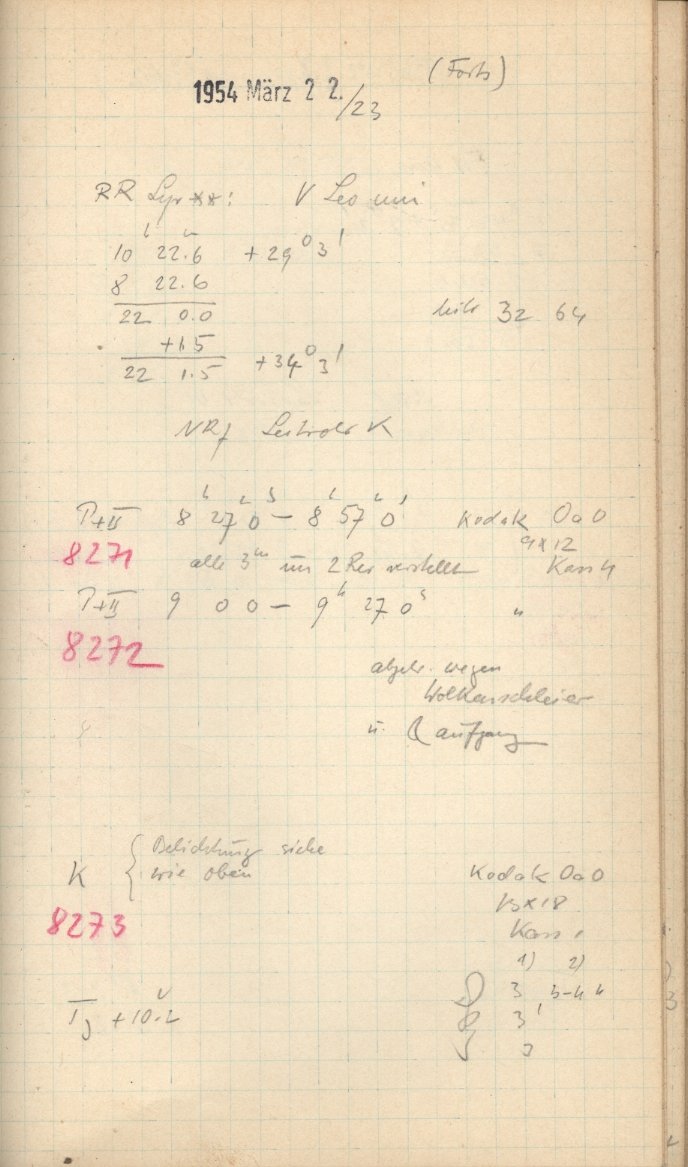 (Forts)
1954 März 22./23
RR Lyr **: V Leo mi
10 h 22.6 m +29° 3'
8 22.6
22 0.0
32 64
+1.5
22 1.5 +34° 3'
NRf K
8 h 27 m 0 s – 8 h 57 m 0 s Kodak OaO
9x12
8271 alle 3 m um 2 Rev verstellt Kass 4
9 0 0 – 9 h 27 0 s "
8272
abgebr. wegen
Wolkenschleier
u. ☾ aufgang
Belichtung siehe
K { wie oben Kodak OaO
13x18
8273 Kass 1
1) 2)
3 3-4
+10.2 3'
3